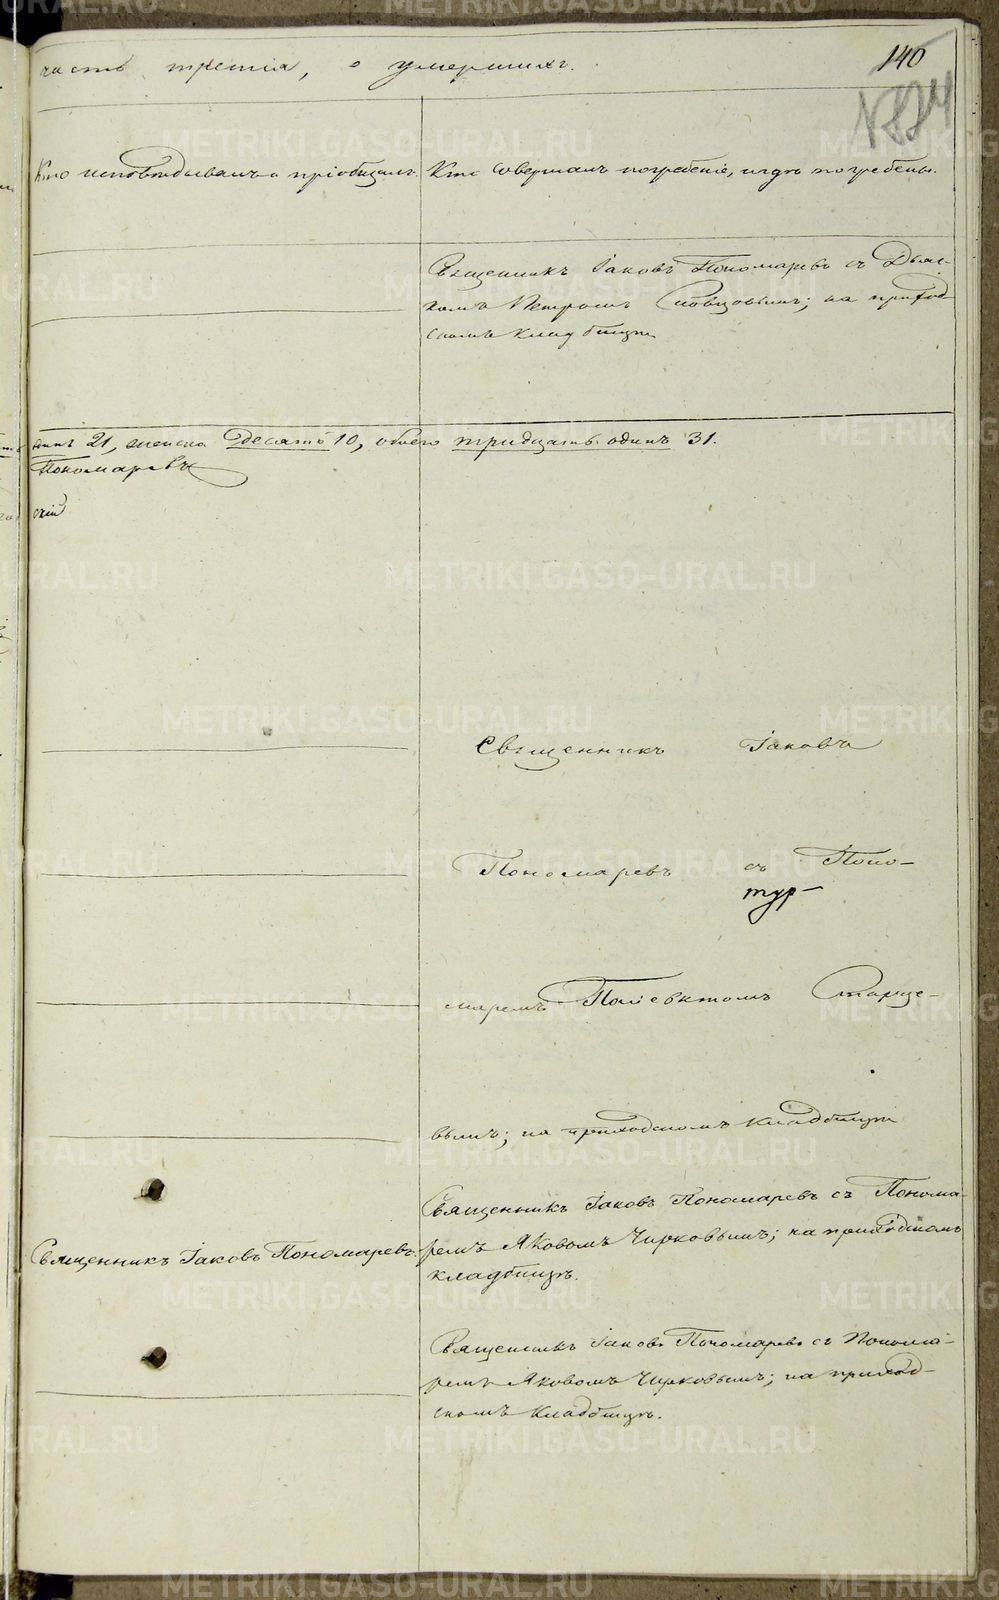 часть третія, о умершихъ.
140
Кто исповѣдывалъ и пріобщалъ.
Кто совершалъ погребеніе, и гдѣ погребены.
Священникъ Іаковъ Пономаревъ съ Дьяч-
комъ Петромъ Словцовымъ; на приход-
скомъ кладбищѣ
динъ 21, женска Десять 10, обоего тридцать одинъ 31.
Пономаревъ
скій
Священникъ Іаковъ
Пономаревъ съ Поно-
тур-
маремъ Поліевктомъ Старце-
вымъ; на приходскомъ кладбищѣ
Священникъ Іаковъ Пономаревъ.
Священникъ Іаковъ Пономаревъ съ Понома-
ремъ Яковомъ Чирковымъ; на приходскомъ
кладбищѣ.
Священникъ Іаковъ Пономаревъ съ Понома-
ремъ Яковомъ Чирковымъ; на приход-
скомъ кладбищѣ.
METRIKI.GASO-URAL.RU